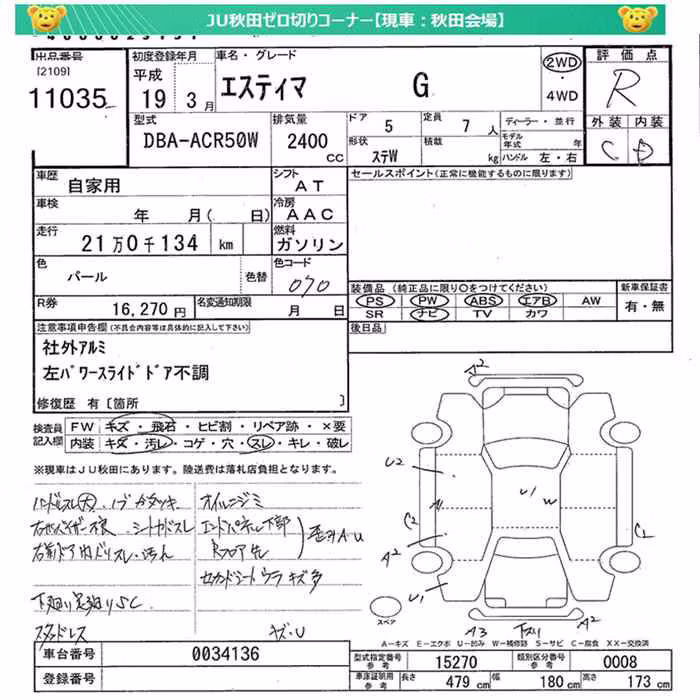 JU秋田ゼロ切りコーナー【現車：秋田会場】
出品番号
[2109]
11035
初度登録年月
平成
19 3月
車名・グレード
エスティマ G
2WD
・
4WD
評価点
R
型式
DBA-ACR50W
排気量
2400
CC
ドア
5
定員
7 人
形状
ステW
積載
kg
ディーラー・並行
モデル
年式 年
ハンドル 左・右
外装 内装
C D
車歴
自家用
シフト
AT
セールスポイント(正常に機能するものに限ります)
車検
年 月( 日)
冷房
AAC
走行
21万0千134 km
燃料
ガソリン
色
パール
色替
色コード
070
R券
16,270円
名変通知期限
月 日
装備品 (純正品に限り○をつけてください)
PS PW ABS エアB AW
SR ナビ TV カワ
新車保証書
有・無
後日品
注意事項申告欄(不具合内容等は具体的に記入して下さい)
社外アルミ
左パワースライドドア不調
修復歴 有[箇所 ]
検査員
記入欄
FW キズ・飛石・ヒビ割・リペア跡・×要
内装 キズ・汚レ・コゲ・穴・スレ・キレ・破レ
※現車はJU秋田にあります。陸送費は落札店負担となります。
ハンドルスレ大
オイルニジミ
エンドパネル下部
シートカドスレ
Rフロア先
セカンドシートウラキズ多
下廻り足廻りSC
スタッドレス
キズ・U
A2
U2
U1
W
C2
C1
A2
U1
A3
下スリ
A2
スペア
A－キズ E－エクボ U－凹み W－補修跡 S－サビ C－腐食 XX－交換済
車台番号
0034136
登録番号
型式指定番号
参考
15270
類別区分番号
参考
0008
車庫証明用
参考
長さ
479 cm
幅
180 cm
高さ
173 cm